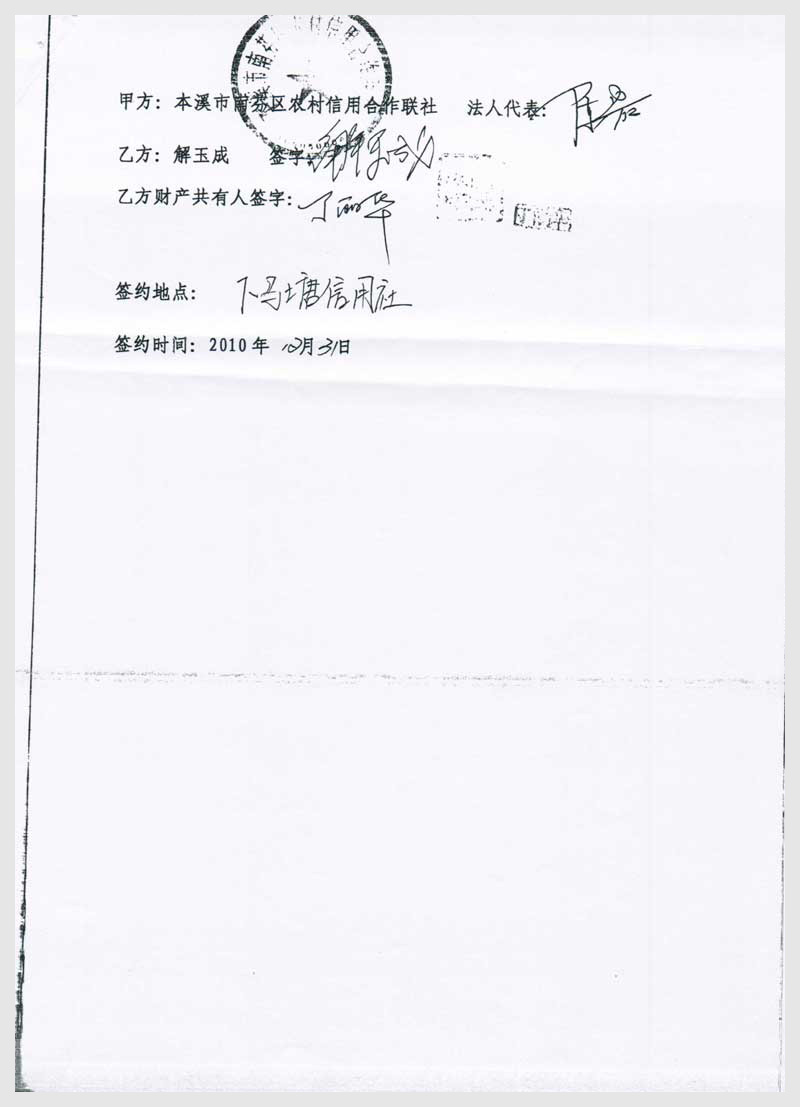 甲方：本溪市南芬区农村信用合作联社 法人代表：
乙方：解玉成 签字：解玉成
乙方财产共有人签字：丁丽华
签约地点： 下马塘信用社
签约时间：2010年 12月31日